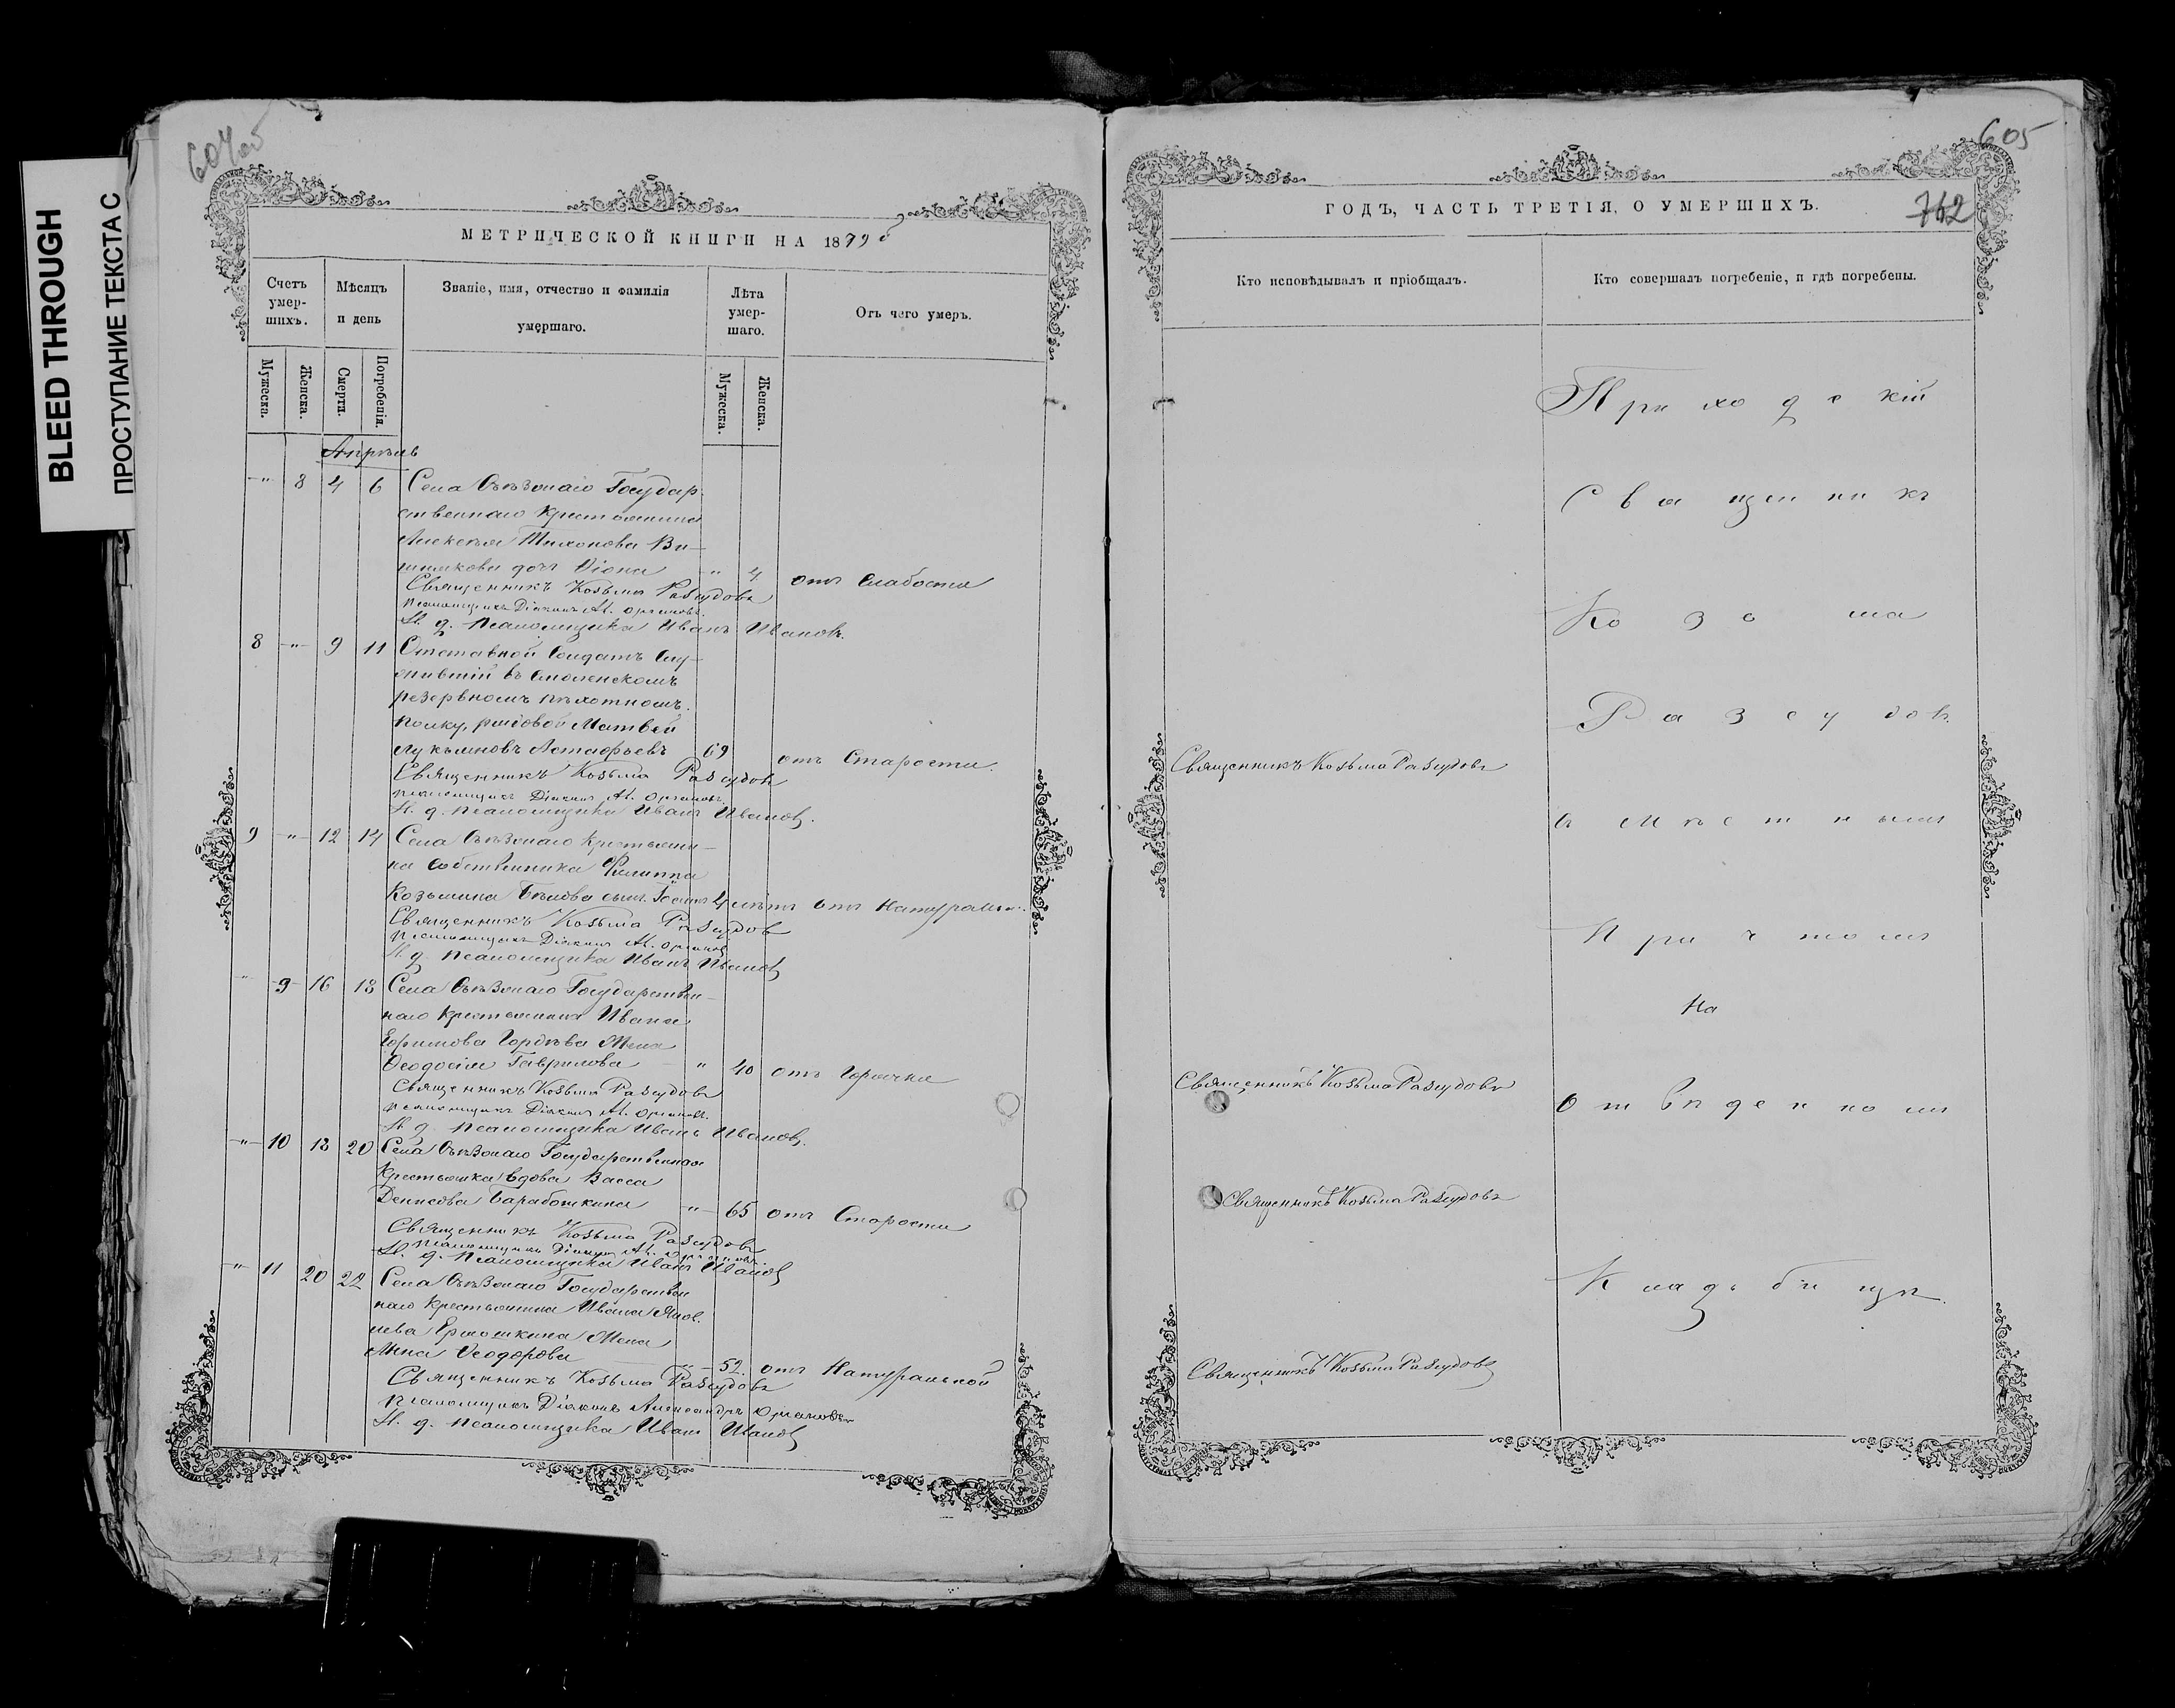 BLEED THROUGH
ПРОСТУПАНИЕ ТЕКСТА С
605
МЕТРИЧЕСКОЙ КНИГИ НА 1879
Счетъ умершихъ.
Мѣсяцъ и день
Званіе, имя, отчество и фамилія умершаго.
Лѣта умершаго.
Отъ чего умеръ.
Мужеска.
Женска.
Смерти.
Погребенія.
Мужеска.
Женска.
Апрѣль
-"- 8 4 6 Села Съѣзжаго Государ-
ственнаго Крестьянина
Алексѣя Тихонова Ви-
дочь -"- 4 отъ Слабости
Священникъ Козьма Разсудовъ
Псаломщикъ Діаконъ Ал.
И. д. Псаломщика Иванъ Ивановъ.
8 -"- 9 11 Отставной Солдатъ Слу-
жившій въ Смоленскомъ
резервномъ пѣхотномъ
полку, рядовой Матвей
Лукьяновъ Астафьевъ 69 отъ Старости.
Священникъ Козьма Разсудовъ
Псаломщикъ Діаконъ Ал.
И. д. Псаломщика Иванъ Ивановъ.
9 -"- 12 14 Села Съѣзжаго Крестьяни-
на Собственника Филиппа
Козьмина Бѣлова сынъ 4 лѣтъ отъ Натуральн.
Священникъ Козьма Разсудовъ
Псаломщикъ Діаконъ Ал.
И. д. Псаломщика Иванъ Ивановъ
" 9 16 18 Села Съѣзжаго Государствен-
наго Крестьянина Ивана
Ефимова Гордѣева Жена
Ѳеодосія Гаврилова " 40 отъ Горячки
Священникъ Козьма Разсудовъ
Псаломщикъ Діаконъ Ал.
И. д. Псаломщика Иванъ Ивановъ.
-"- 10 18 20 Села Съѣзжаго Государственная
Крестьянка вдова Васса
Денисова Барабошкина -"- 65 отъ Старости
Священникъ Козьма Разсудовъ
Псаломщикъ Діаконъ Ал.
И. д. Псаломщика Иванъ Ивановъ
-"- 11 20 22 Села Съѣзжаго Государствен
наго Крестьянина Ивана Яков-
лева Ермошкина Жена
Анна Ѳеодорова -"- 52. отъ Натуральной
Священникъ Козьма Разсудовъ
Псаломщикъ Діаконъ Александръ
И. д. Псаломщика Иванъ Ивановъ
605
762
ГОДЪ, ЧАСТЬ ТРЕТІЯ, О УМЕРШИХЪ.
Кто исповѣдывалъ и пріобщалъ.
Кто совершалъ погребеніе, и гдѣ погребены.
Приходскій
Священникъ
Козьма
Разсудовъ
Священникъ Козьма Разсудовъ
съ мѣстнымъ
Причтомъ
На
Священникъ Козьма Разсудовъ
отведенномъ
Священникъ Козьма Разсудовъ
Кладбищѣ.
Священникъ Козьма Разсудовъ